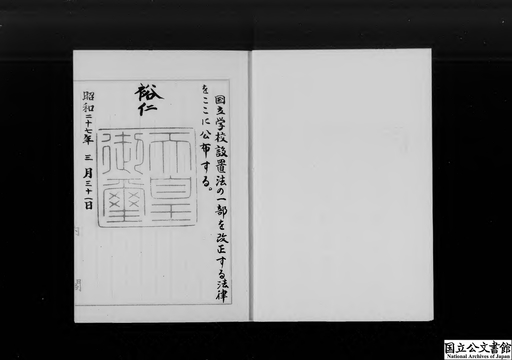 国立学校設置法の一部を改正する法律
をここに公布する。
裕仁
天皇
御璽
昭和二十七年三月三十一日
国立公文書館
National Archives of Japan